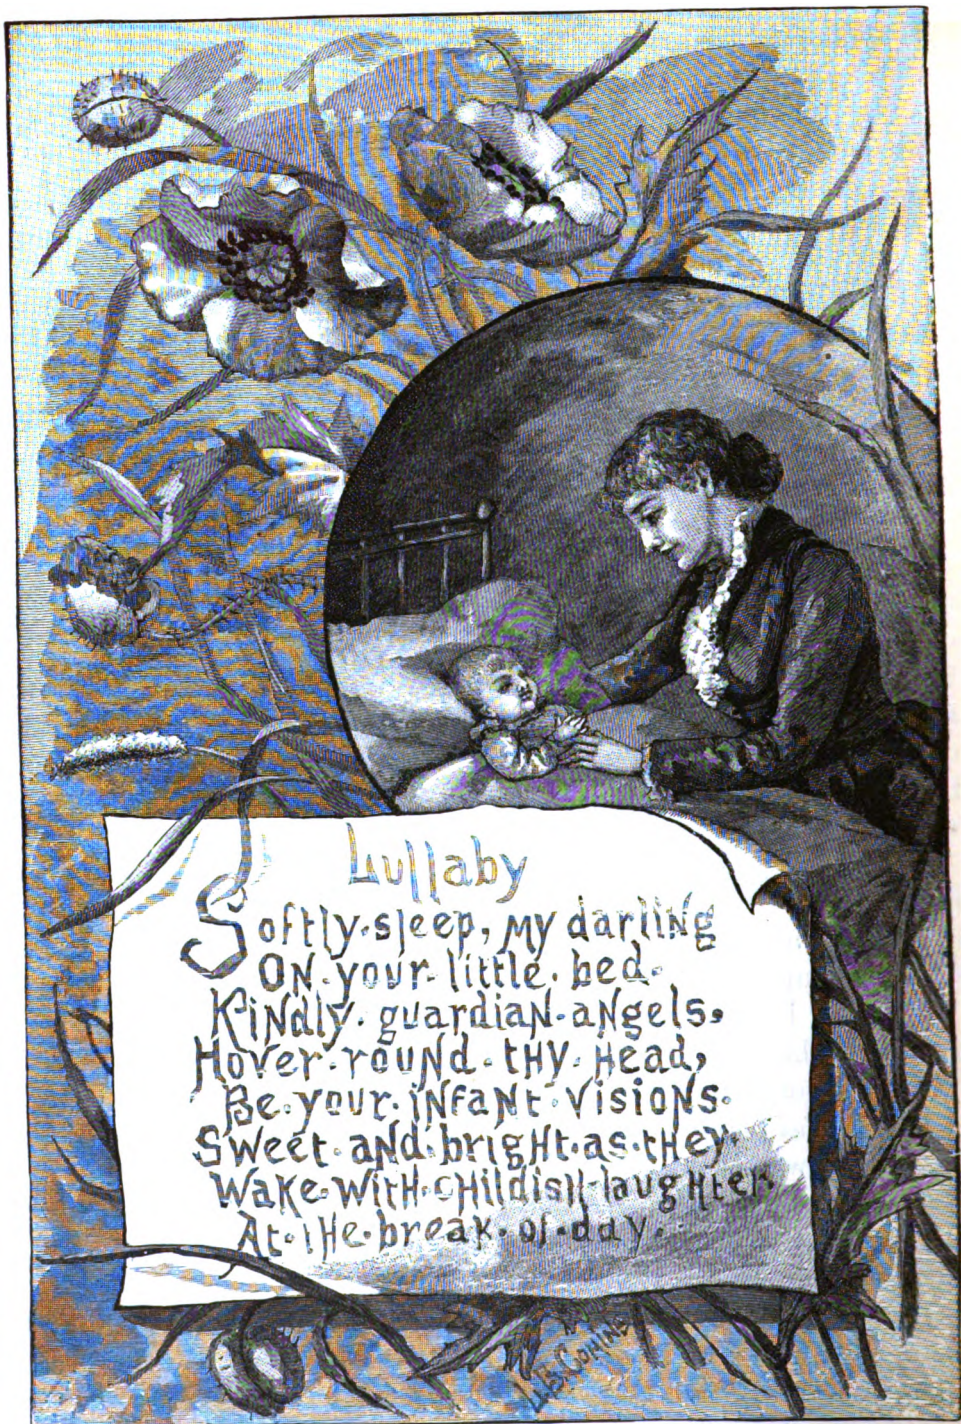 Lullaby
Softly·sleep, my darling
On·your·little·bed·
Kindly·guardian·angels,
Hover·round·thy·head,
Be·your·infant·visions·
Sweet·and·bright·as·they·
Wake·with·childish·laughter·
At·the·break·of·day.
L.B. Comins